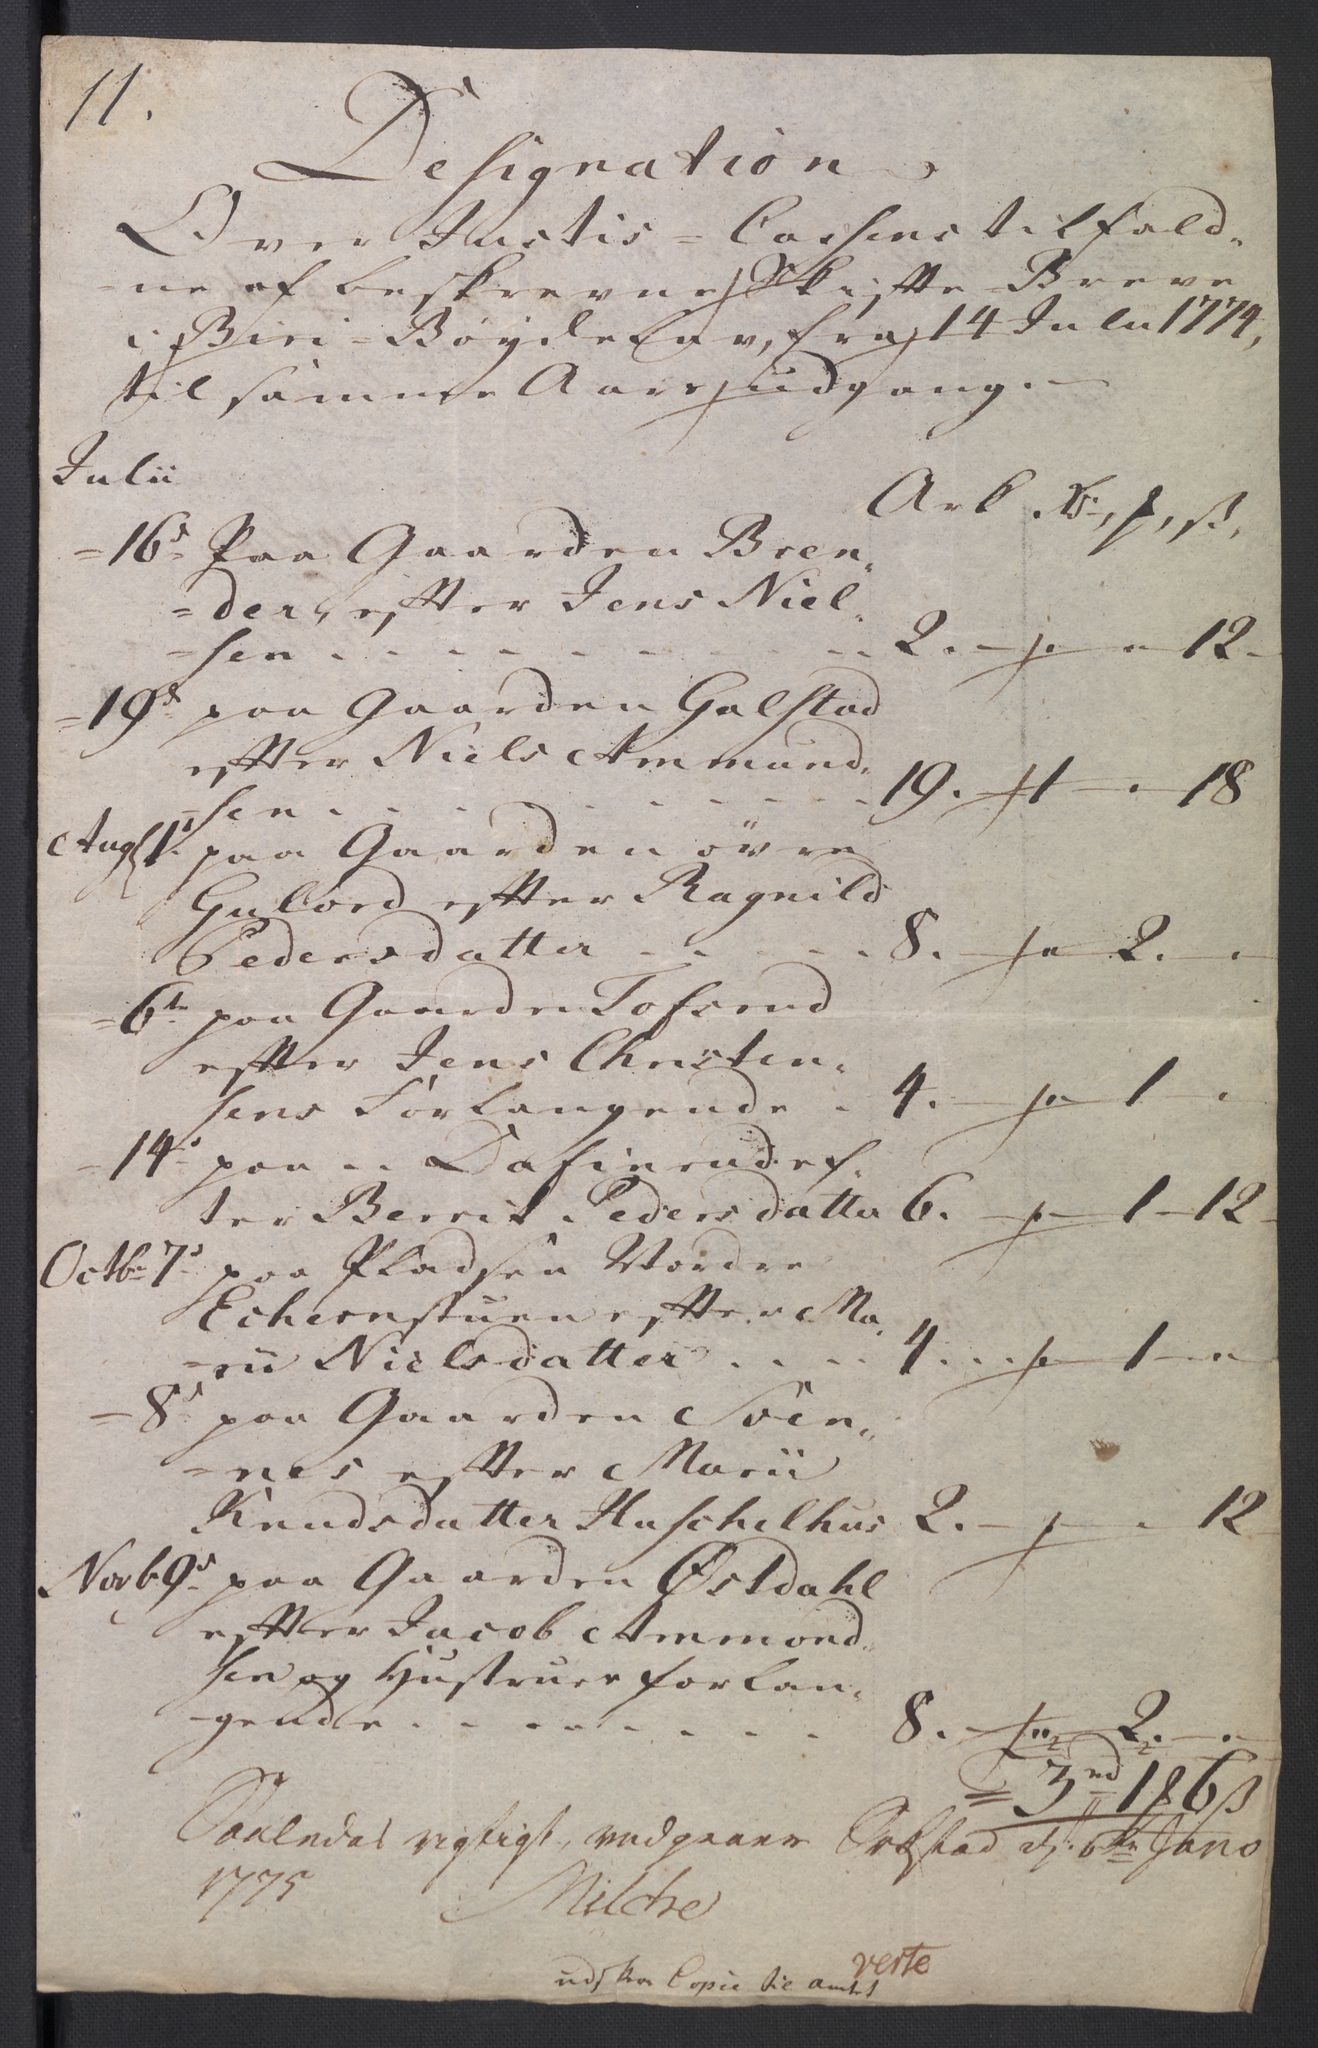 11.
Designation
Over Justis = Cassens tilfald-
-ne af beskrevne Skifte-Breve
i Biri = Böydelav, fra 14 Julii 1774,
til samme Aars udgang.
Julii
Ark
= 16de Paa Gaarden Bren-
= der, efter Jens Niel-
= sen . . . . . . 2. - - 12.
= 19de paa Gaarden Galstad
efter Niels Ammund-
sen . . . . . . 19. - 1 - 18
Aug 1 paa Gaarden övre
Gulord efter Ragnild
Pedersdatter . . . . 8. - 2. -
= 6te paa Gaarden Tofsrud
efter Jens Christen-
sens Forlangende . 4. - 1 -
= 14 paa . . ef-
ter Berrit Pedersdatter 6. - 1 - 12
Octbr 7de paa Pladsen Nordre
Echernstuen efter Ma-
-rii Nielsdatter . . . . 4. - 1 -
= 8de paa Gaarden
= nes efter Marii
Knudsdatter Haschelhus 2. - - 12
Novb 9de paa Gaarden Østdahl
efter Jacob Ammond-
sen og Hustrues forlan-
-gende . . . . . . 8. - 2. -
= 3rd 1 6 ß
Saaledes rigtigt, vedgaaer d. 6te Janv
1775 Milche
verte
udskr Copie til amtet